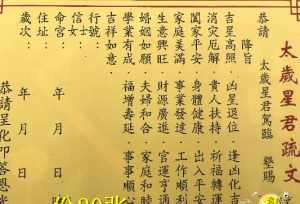 太歲星君疏文
恭請 太歲星君駕臨 墾賜
降旨
吉星高照・凶星退位・逢凶化吉
消災厄解・貴人扶持・祈福轉運
閤家平安・身體健康・出入平安
家庭美滿・事業發達・工作順利
生意興旺・財源廣進・官運亨通
婚姻如願・夫婦和合・家庭和睦
學業有成・福增壽延・事事順心
吉祥如意・
行號：
信士：
信女：
命宮： 年 月 日
住址：
歲次： 年 月 日
恭請呈化叩答恩光